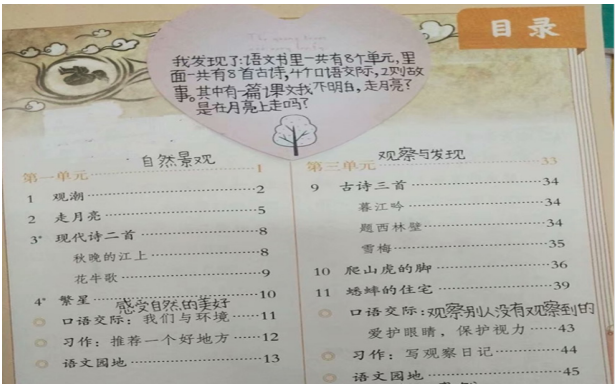 目录
我发现了:语文书里一共有8个单元,里
面一共有8首古诗,4个口语交际,2则故
事。其中有一篇课文我不明白,走月亮?
是在月亮上走吗?
自然景观
第一单元 1
1 观潮 2
2 走月亮 5
3* 现代诗二首 8
秋晚的江上 8
花牛歌 9
4* 繁星 10
感受自然的美好
口语交际:我们与环境 11
习作:推荐一个好地方 12
语文园地 13
观察与发现
第三单元 33
9 古诗三首 34
暮江吟 34
题西林壁 34
雪梅 35
10 爬山虎的脚 36
11 蟋蟀的住宅 39
口语交际:观察别人没有观察到的
爱护眼睛,保护视力 43
习作:写观察日记 44
语文园地 45